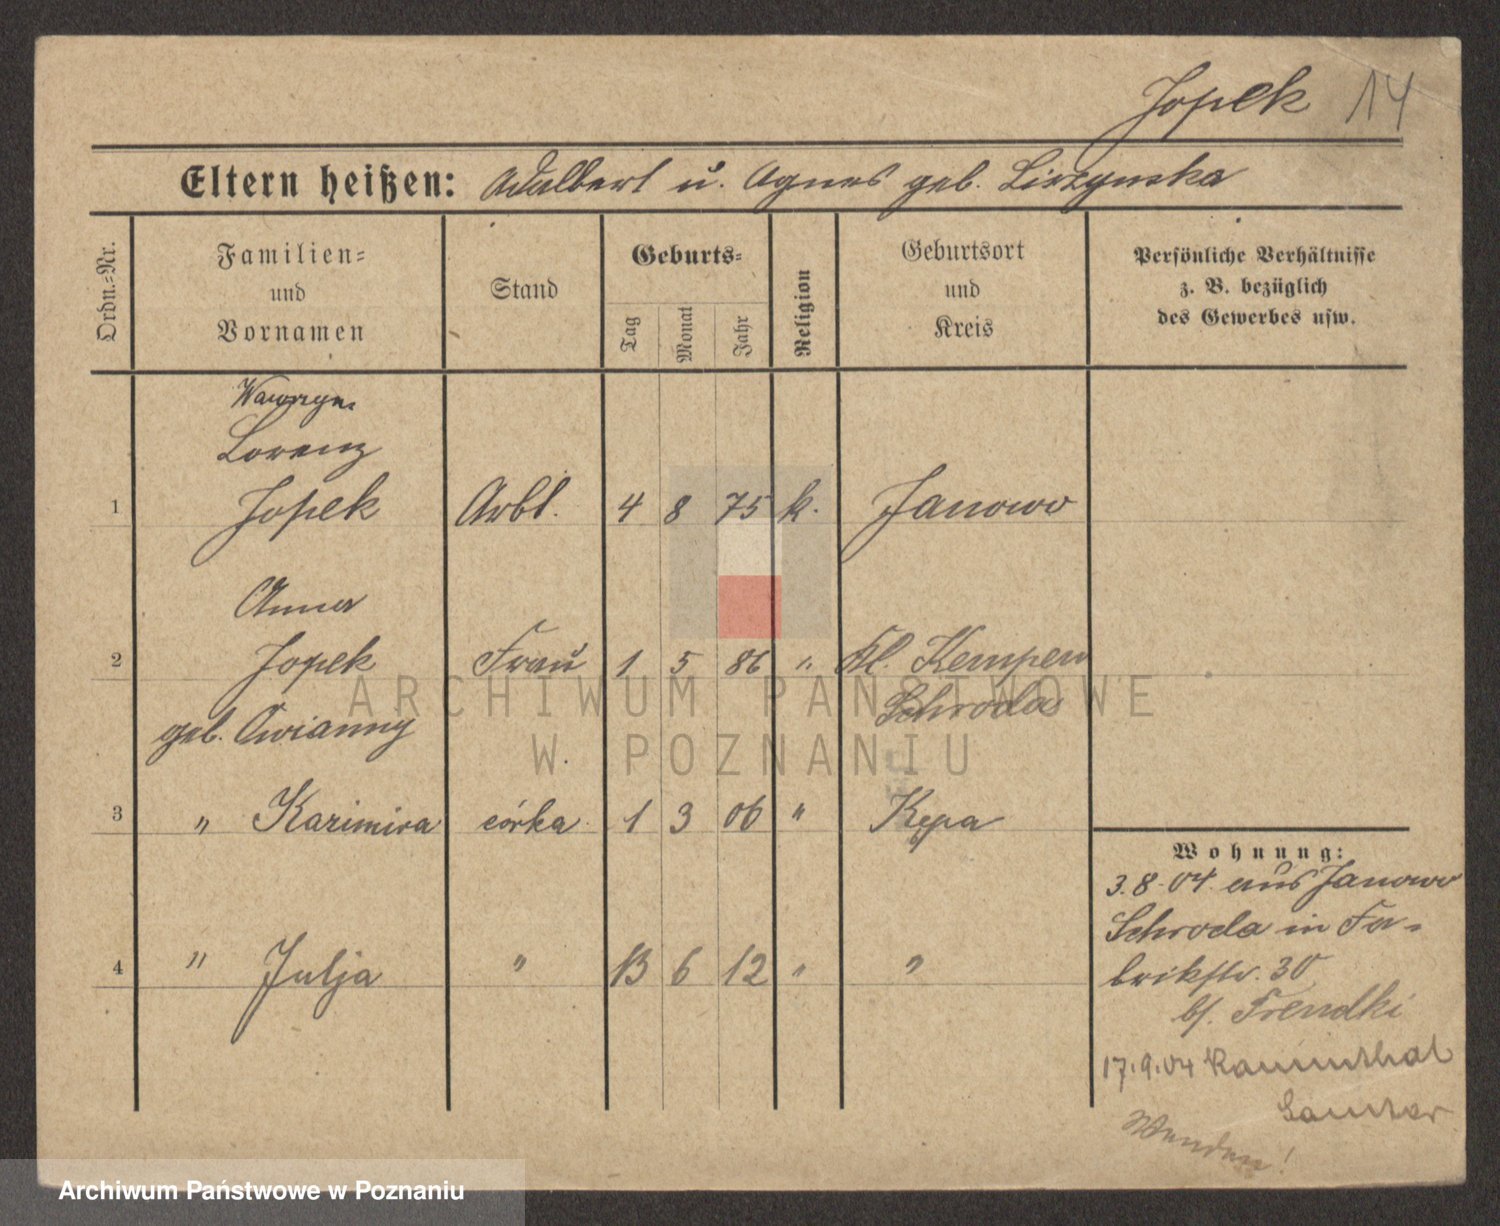 Jopek 14
Eltern heißen: Adalbert u. Agnes geb. Liszynska
Ordn.=Nr.
Familien=
und
Vornamen
Stand
Geburts=
Tag
Monat
Jahr
Religion
Geburtsort
und
Kreis
Persönliche Verhältnisse
z. B. bezüglich
des Gewerbes usw.
Wawrzyn.
Lorenz
1 Jopek Arbt. 4 8 75 k. Janowo
Anna
2 Jopek Frau 1 5 86 " Kl. Kempen
Schroda
geb. Cwianny
3 " Kazimira córka 1 3 06 " Kępa
4 " Julja " 13 6 12 " "
Wohnung:
3.8.04. aus Janowo
Schroda in Fa-
brikstr. 30
b/. Frendki
17.9.04
Samter
Wenden!
ARCHIWUM PAŃSTWOWE
W POZNANIU
Archiwum Państwowe w Poznaniu